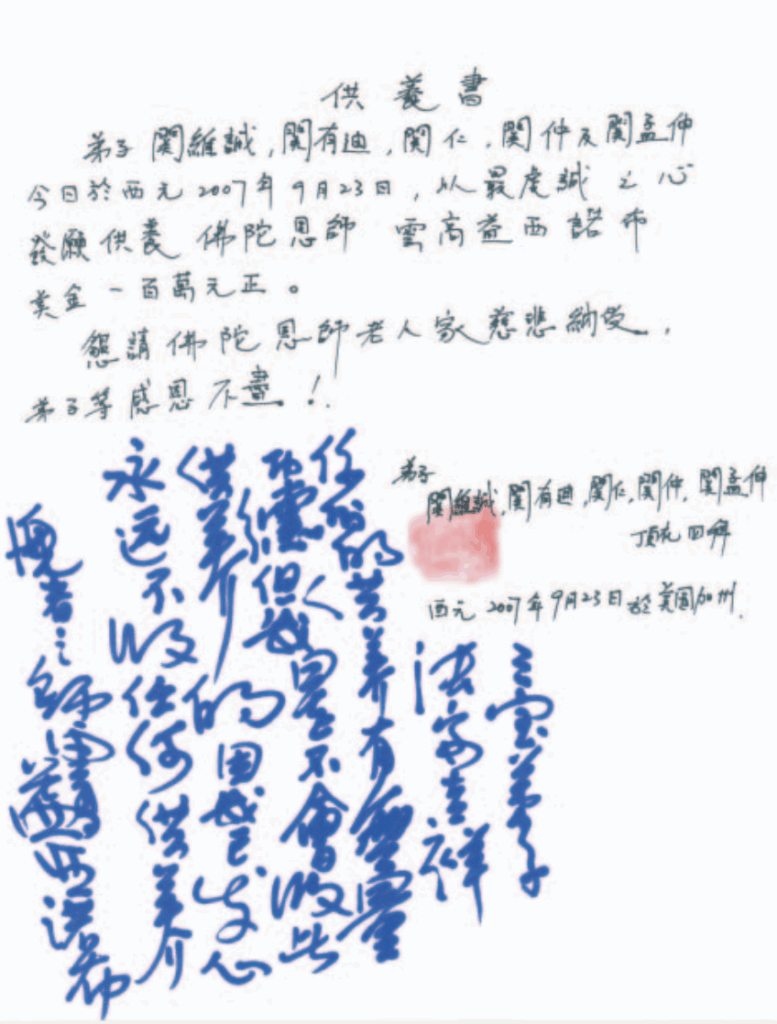 供養書
弟子 関維誠，関有迪，関仁，関仲及関孟仲
今日於西元2007年9月23日，以最虔誠之心
發願供養 佛陀恩師 雲高益西諾布
美金一百萬元正。
懇請佛陀恩師老人家慈悲納受，
弟子等感恩不盡！
弟子
関維誠，関有迪，関仁，関仲，関孟仲
頂礼回拜
西元2007年9月23日於美国加州．
三宝弟子
法宗吉祥
任何的供养有無量
功德但我是不會收此
供养的因我已发心
永远不收任何供养
愧者之師雲高益西洛布